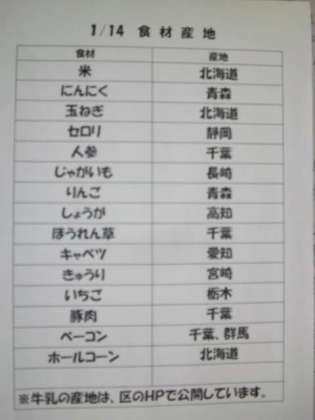 1/14 食材産地
食材 産地
米 北海道
にんにく 青森
玉ねぎ 北海道
セロリ 静岡
人参 千葉
じゃがいも 長崎
りんご 青森
しょうが 高知
ほうれん草 千葉
キャベツ 愛知
きゅうり 宮崎
いちご 栃木
豚肉 千葉
ベーコン 千葉、群馬
ホールコーン 北海道
※牛乳の産地は、区のHPで公開しています。